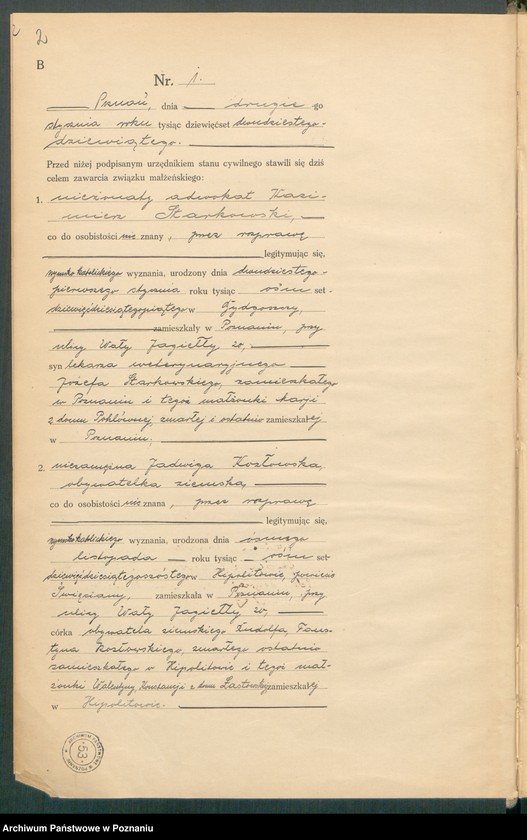 2
2
B
Nr. 1.
Poznań, dnia drugie go
stycznia roku tysiąc dziewięćset dwudziestego-
dziewiątego.
Przed niżej podpisanym urzędnikiem stanu cywilnego stawili się dziś
celem zawarcia związku małżeńskiego:
1. nieżonaty adwokat Kazi-
mierz Starkowski,
co do osobistości nie znany, przez rozprawę
legitymując się,
rzymsko katolickiego wyznania, urodzony dnia dwudziestego-
pierwszego stycznia roku tysiąc ośm set-
dziewięćdziesiątegopiątego w Bydgoszczy,
zamieszkały w Poznaniu, przy
ulicy Wały Jagiełły 20,
syn lekarza weterynaryjnego
Józefa Starkowskiego, zamieszkałego
w Poznaniu i tegoż małżonki Marji
z domu zmarłej i ostatnio zamieszkałej
w Poznaniu,
2. niezamężna Jadwiga Kozłowska,
obywatelka ziemska,
co do osobistości nie znana, przez rozprawę
legitymując się,
rzymsko katolickiego wyznania, urodzona dnia ósmego
listopada roku tysiąc ośm set-
dziewięćdziesiątegoszóstego w Hipolitowie, powiecie
Święciany, zamieszkała w Poznaniu, przy
ulicy Wały Jagiełły 20,
córka obywatela ziemskiego Rudolfa, Faus-
tyna Kozłowskiego, zmarłego ostatnio
zamieszkałego w Hipolitowie i tegoż mał-
żonki Walentyny, Konstancji z domu zamieszkałej
w Hipolitowie.
53
Archiwum Państwowe w Poznaniu